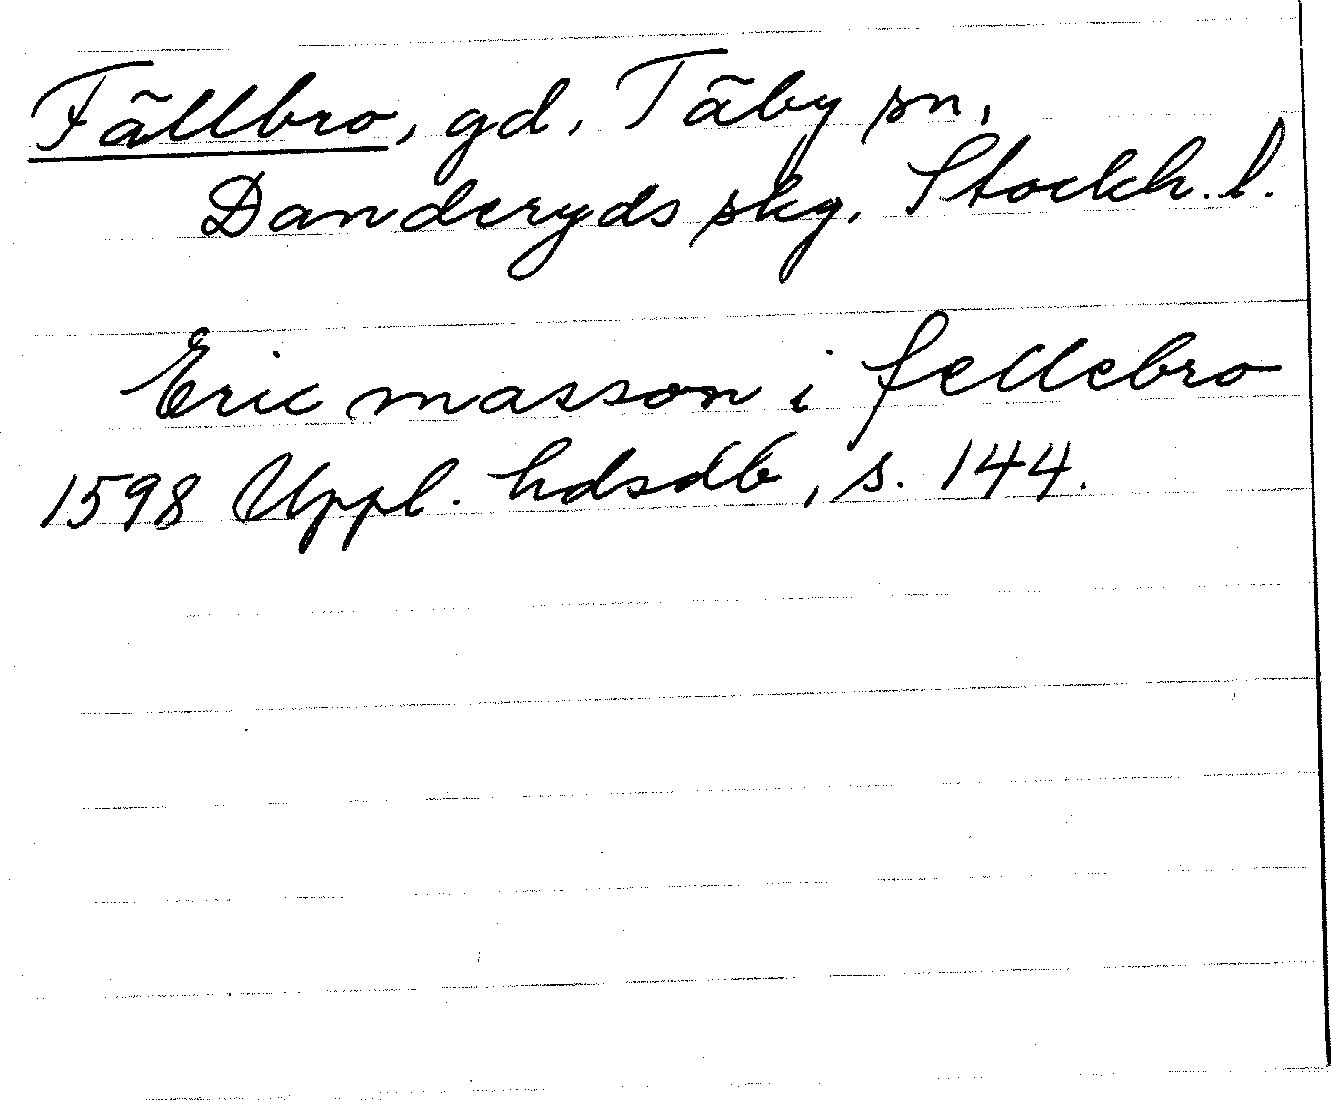 Fällbro, gd, Täby sn,
Danderyds skg, Stockh. l.
Eric masson i fellebro
1598 Uppl. hdsdb, s. 144.